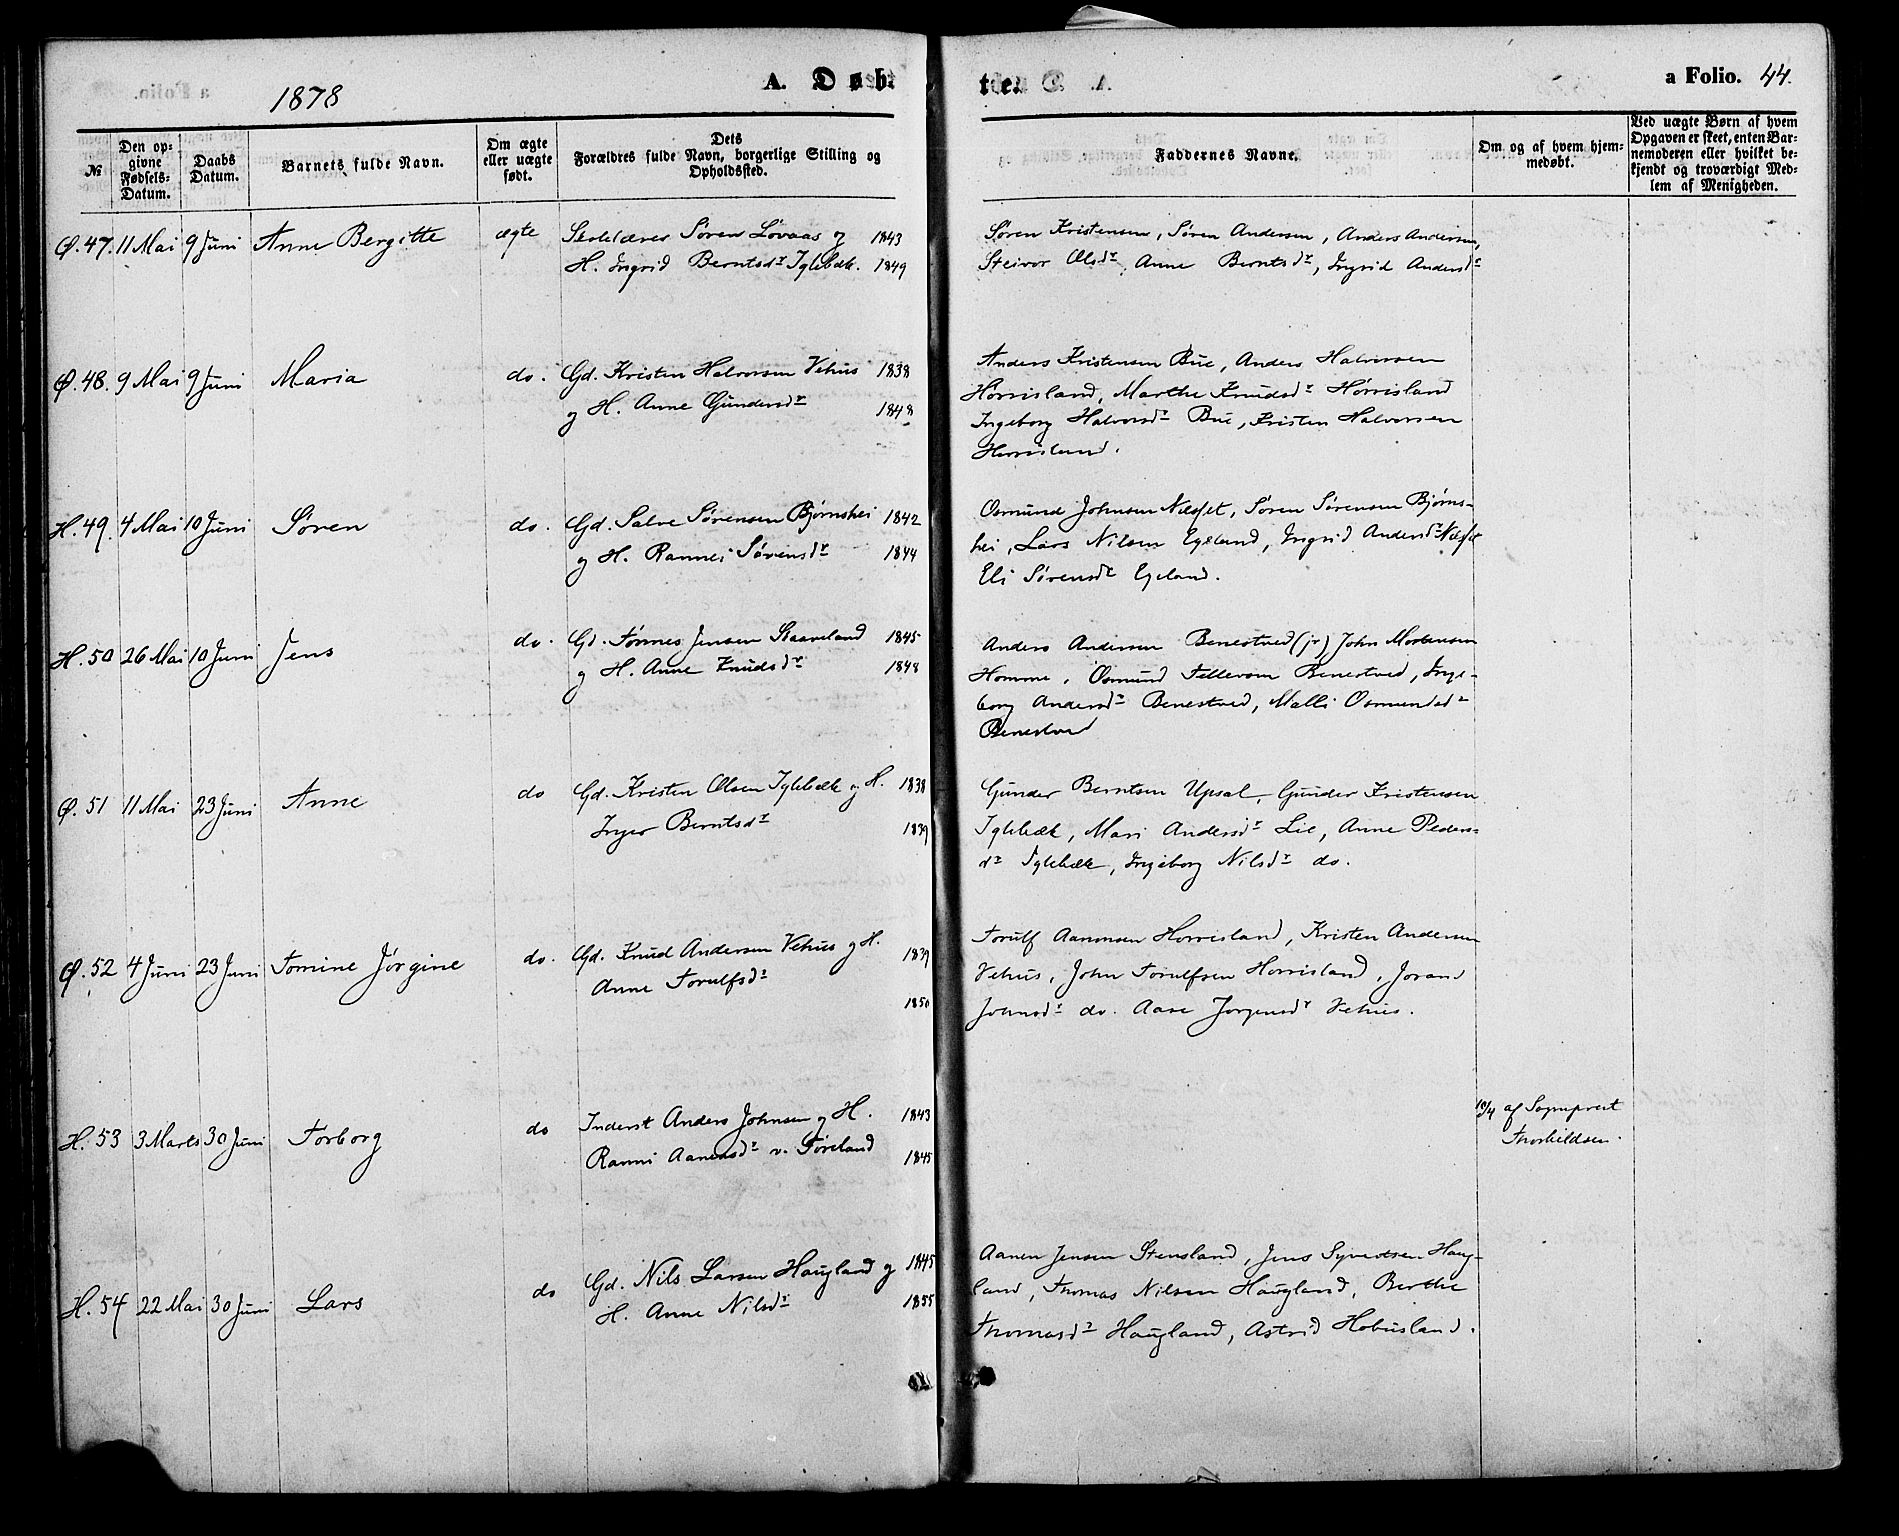 1878
A. Døb-
te.
a Folio. 44.
№
Den op-
givne
Fødsels-
Datum.
Daabs
Datum.
Barnets fulde Navn.
Om ægte
eller uægte
født.
Dets
Forældres fulde Navn, borgerlige Stilling og
Opholdssted.
Faddernes Navne.
Om og af hvem hjem-
medøbt.
Ved uægte Børn af hvem
Opgaven er skeet, enten Bar-
nemoderen eller hvilket be-
kjendt og troværdigt Med-
lem af Menigheden.
Ø. 47. 11 Mai 9 Juni Anne Bergitte ægte Skolelærer Søren Løvaas og 1843
H. Ingrid Berntsdr Iglebæk. 1849
Søren Kristensen, Søren Andersen, Anders Andersen,
Steivor Olsdr, Anne Berntsdr, Ingrid Andersdr
Ø. 48. 9 Mai 9 Juni Maria do. Gd. Kristen Halvorsen Vehus 1838
og H. Anne Gundersdr 1848
Anders Kristensen Bue, Anders Halvorsen
Horrisland, Marthe Knudsdr Hørrisland
Ingeborg Halvorsdr Bue, Kristen Halvorsen
Horrisland.
H. 49. 4 Mai 10 Juni Søren do. Gd. Salve Sørensen Bjørnshei 1842
og H. Rannei Sørensdr 1844
Osmund Johnsen Næset, Søren Sørensen Bjørns-
hei, Lars Nilsen Egeland, Ingrid Andersdr Næset
Eli Sørensdr Egeland.
H. 50 26 Mai 10 Juni Jens do. Gd. Tørnes Jensen Skaaveland 1845
og H. Anne Knudsdr 1848
Anders Andersen Benestved (jr), John Mortensen
Homme, Osmund Tellevsen Benestved, Inge-
borg Andersdr Benestved, Malli Osmundsdr
Benestved
Ø. 51 11 Mai 23 Juni Anne do Gd. Kristen Olsen Iglebæk og H. 1838
Inger Berntsdr 1839
Gunder Berntsen Upsal, Gunder Kristensen
Iglebæk, Mari Andersdr Lie, Anne Peders-
dr Iglebæk, Ingeborg Nilsdr do.
Ø. 52 4 Juni 23 Juni Tomine Jørgine do. Gd. Knud Andersen Vehus og H. 1839
Anne Torulfsdr 1850
Torulf Aanonsen Horrisland, Kristen Andersen
Vehus, John Torulfsen Horrisland, Jorand
Johnsdr do. Aase Jorgensdr Vehus.
H. 53 3 Marts 30 Juni Torborg do Inderst Anders Johnsen og H. 1843
Ranni Aanensdr v. Føreland 1845
10/4 af Sogneprest
Thorkildsen.
H. 54 22 Mai 30 Juni Lars do Gd. Nils Larsen Haugland og 1845
H. Anne Nilsdr 1855
Aanen Jensen Stensland, Jens Syvertsen Haug-
land, Thomas Nilsen Haugland, Berthe
Thomasdr Haugland, Astrid Hobusland.